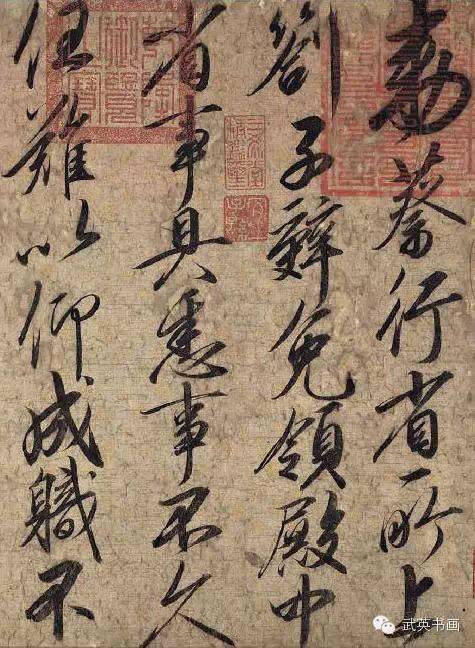 勅蔡行省所上
劄子辭免領殿中
省事具悉事不久
任難以仰成職不
武英书画